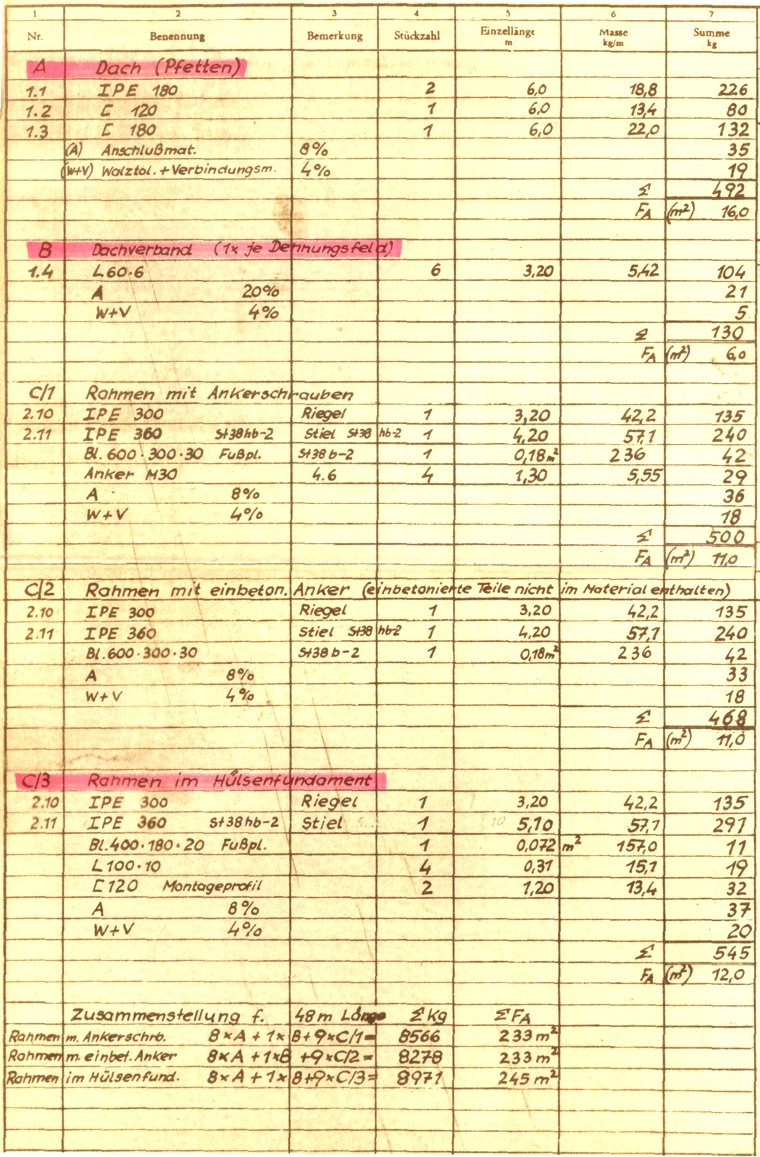 1 2 3 4 5 6 7
Nr. Benennung Bemerkung Stückzahl Einzellänge m Masse kg/m Summe kg
A Dach (Pfetten)
1.1 IPE 180 2 6,0 18,8 226
1.2 [ 120 1 6,0 13,4 80
1.3 [ 180 1 6,0 22,0 132
(A) Anschlußmat. 8% 35
(W+V) Walztol. + Verbindungsm. 4% 19
Σ 492
FA (m²) 16,0
B Dachverband (1x je Dehnungsfeld)
1.4 L60·6 6 3,20 5,42 104
A 20% 21
W+V 4% 5
Σ 130
FA (m²) 6,0
C/1 Rahmen mit Ankerschrauben
2.10 IPE 300 Riegel 1 3,20 42,2 135
2.11 IPE 360 St38hb-2 Stiel St38 hb-2 1 4,20 57,1 240
Bl. 600·300·30 Fußpl. St38b-2 1 0,18m² 236 42
Anker M30 4.6 4 1,30 5,55 29
A 8% 36
W+V 4% 18
Σ 500
FA (m²) 11,0
C/2 Rahmen mit einbeton. Anker (einbetonierte Teile nicht im Material enthalten)
2.10 IPE 300 Riegel 1 3,20 42,2 135
2.11 IPE 360 Stiel St38 hb-2 1 4,20 57,1 240
Bl. 600·300·30 St38b-2 1 0,18m² 236 42
A 8% 33
W+V 4% 18
Σ 468
FA (m²) 11,0
C/3 Rahmen im Hülsenfundament
2.10 IPE 300 Riegel 1 3,20 42,2 135
2.11 IPE 360 St38hb-2 Stiel 1 5,10 57,1 291
Bl. 400·180·20 Fußpl. 1 0,072 m² 157,0 11
L100·10 4 0,31 15,1 19
[120 Montageprofil 2 1,20 13,4 32
A 8% 37
W+V 4% 20
Σ 545
FA (m²) 12,0
Zusammenstellung f. 48m Länge Σ Kg Σ FA
Rahmen m. Ankerschrb. 8×A + 1×B+9×C/1= 8566 233 m²
Rahmen m. einbet. Anker 8×A + 1×B +9×C/2= 8278 233 m²
Rahmen im Hülsenfund. 8×A + 1×B+9×C/3= 8971 245 m²